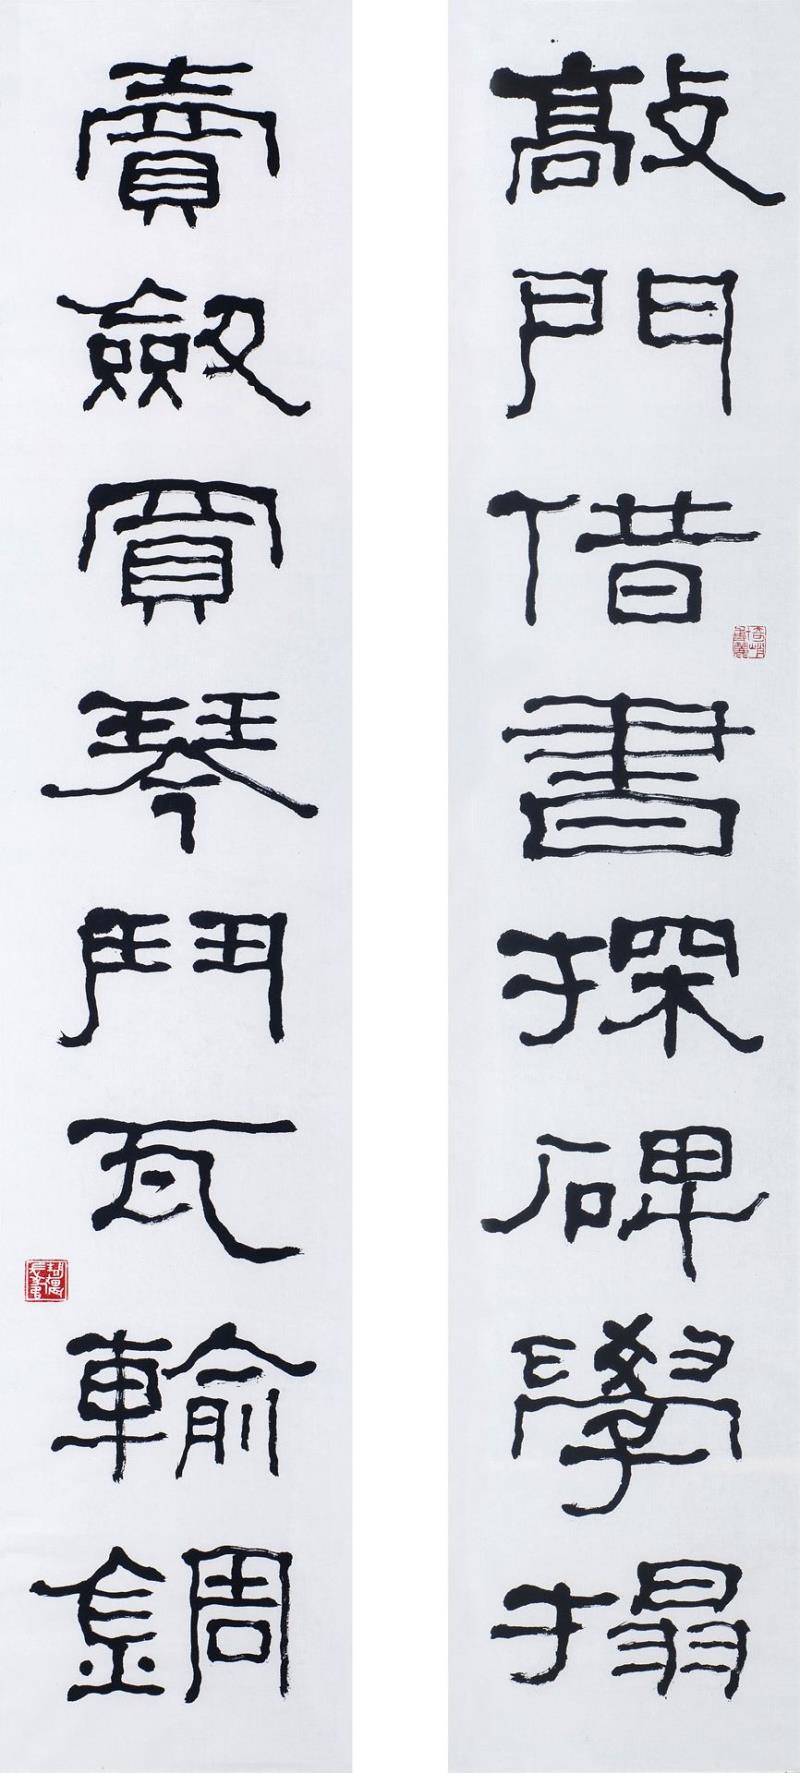 敲門借書探碑學搨
賣劒買琴鬥瓦輸錭